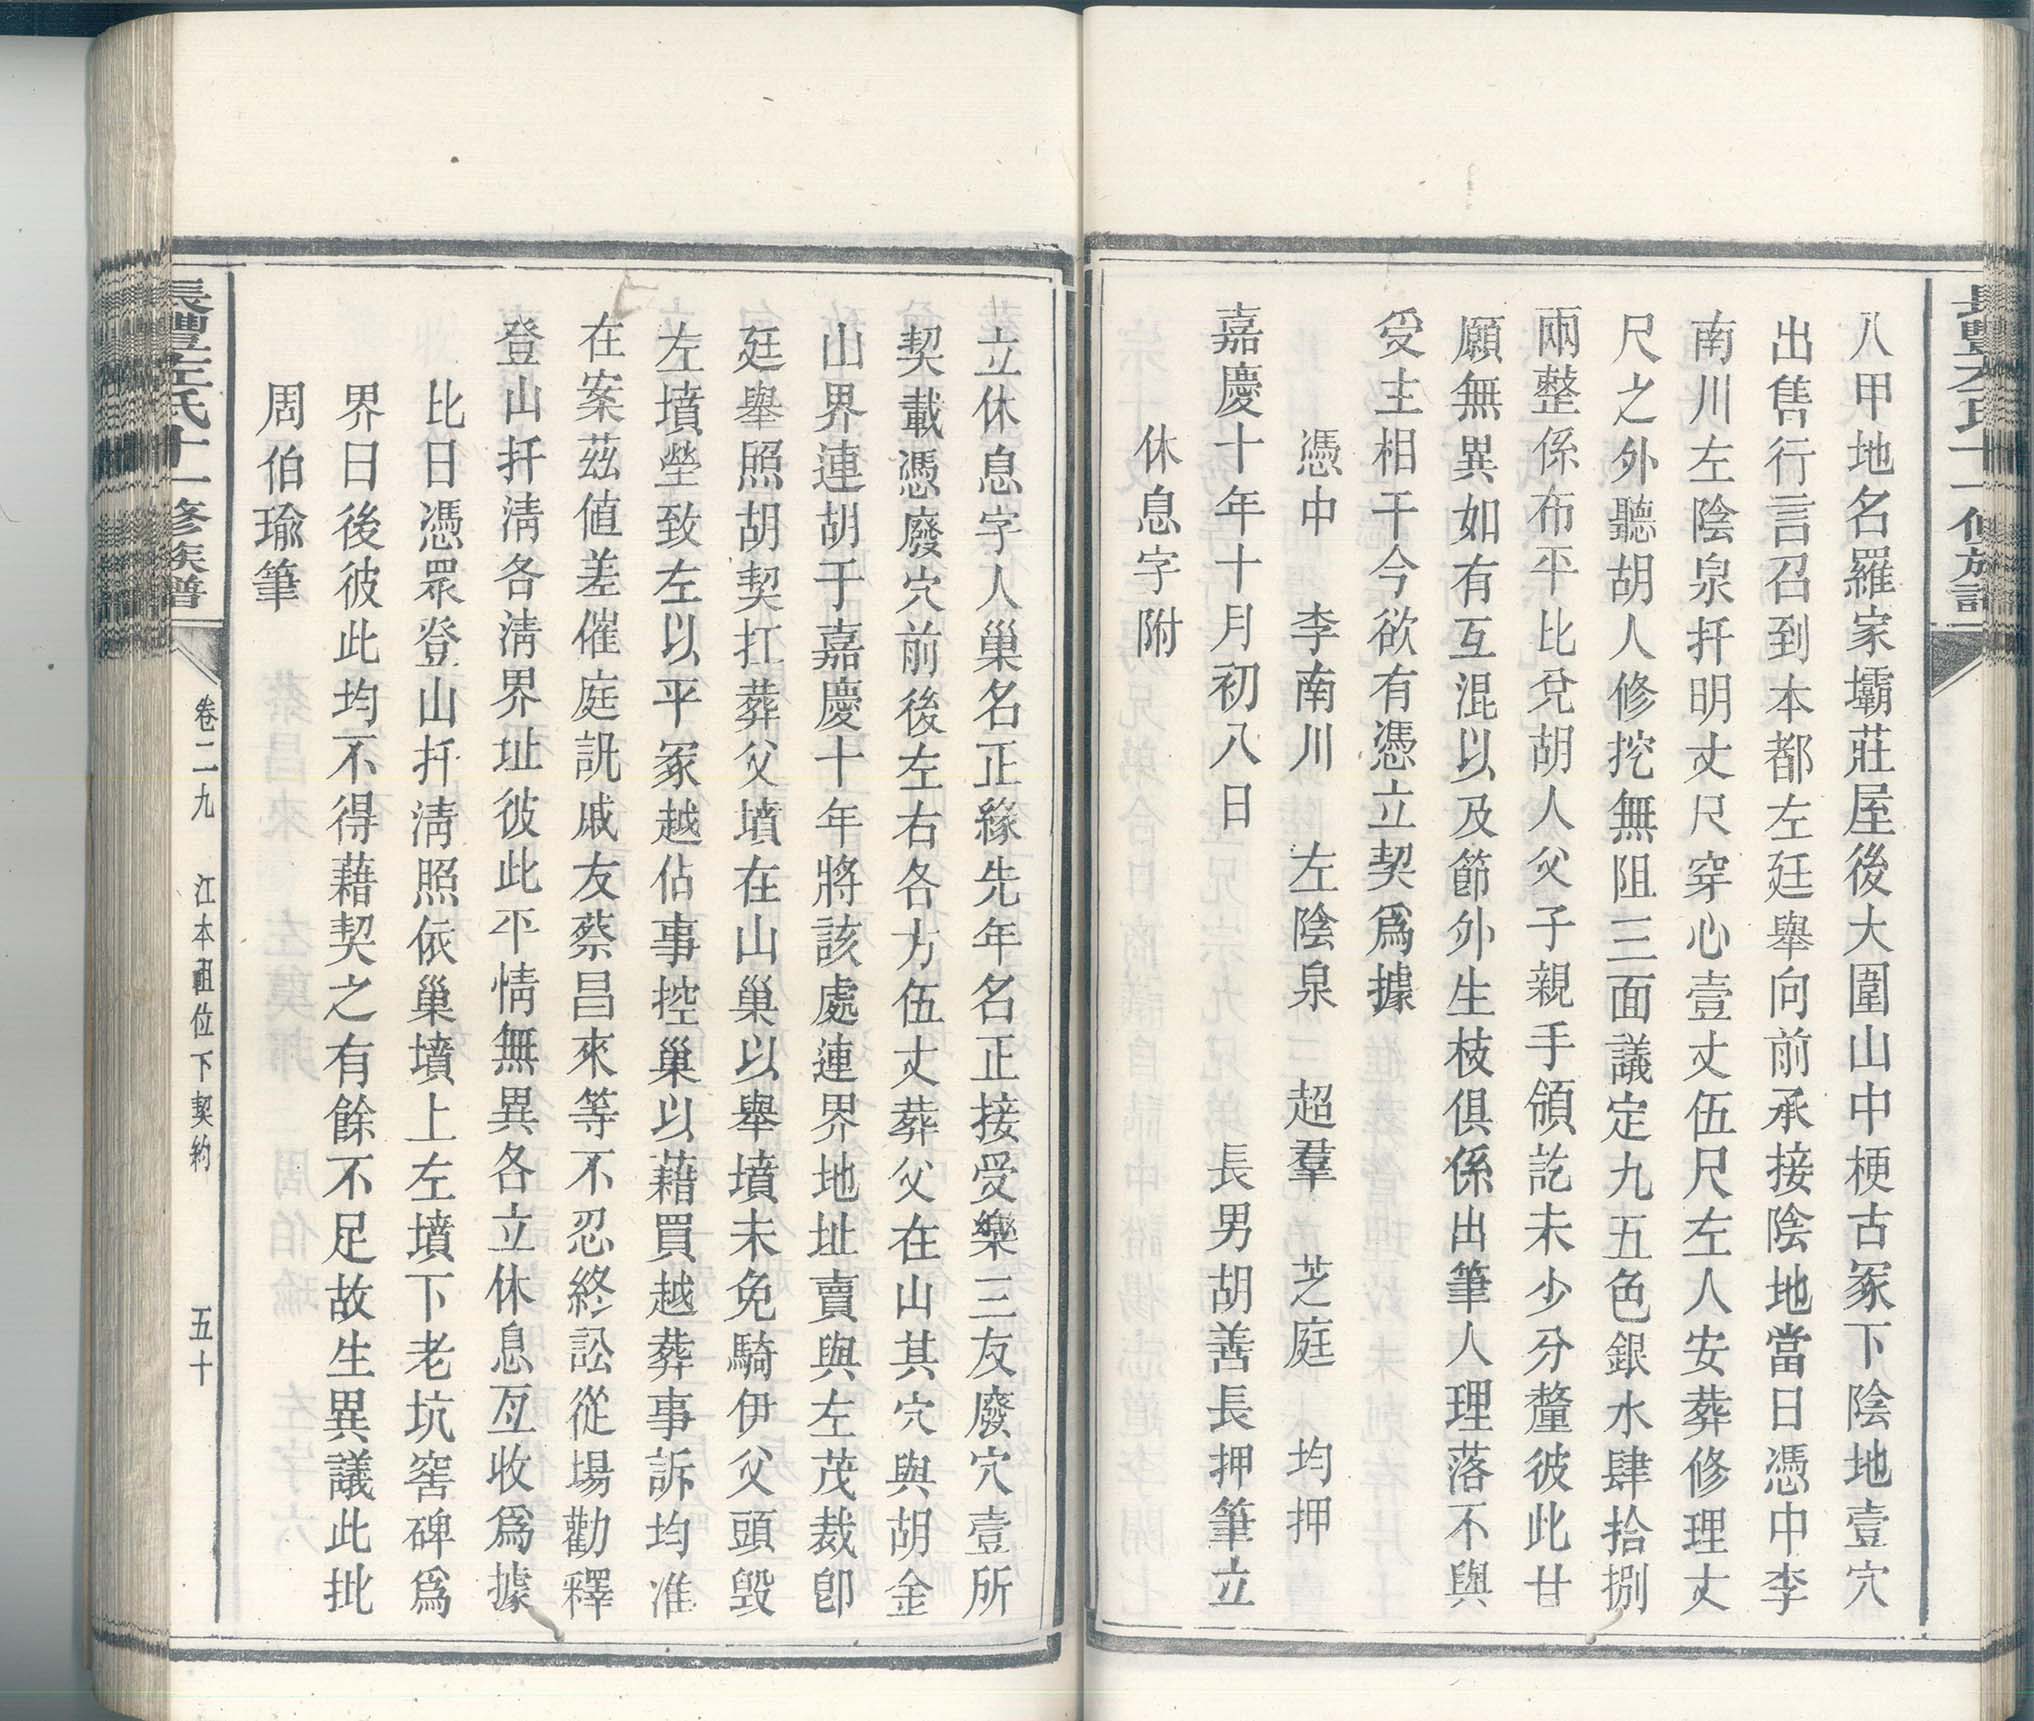 八甲地名羅家壩莊屋後大圍山中梗古冢下陰地壹穴
出售行言召到本都左廷舉向前承接陰地當日憑中李
南川左陰泉扦明丈尺穿心壹丈伍尺左人安葬修理丈
尺之外聽胡人修挖無阻三面議定九五色銀水肆拾捌
兩整係布平比兌胡人父子親手領訖未少分釐彼此甘
願無異如有互混以及節外生枝俱係出筆人理落不與
受主相干今欲有憑立契爲據
憑中　李南川　左陰泉　超羣　芝庭　均押
嘉慶十年十月初八日　長男胡善長押筆立
休息字附
立休息字人巢名正緣先年名正接受樂三友廢穴壹所
契載憑廢穴前後左右各方伍丈葬父在山其穴與胡金
山界連胡于嘉慶十年將該處連界地址賣與左茂裁卽
廷舉照胡契扛葬父墳在山巢以舉墳未免騎伊父頭毀
左墳塋致左以平冢越佔事控巢以藉買越葬事訴均准
在案茲值差催庭訊戚友蔡昌來等不忍終訟從場勸釋
登山扦淸各淸界址彼此平情無異各立休息互收爲據
比日憑眾登山扦淸照依巢墳上左墳下老坑窖碑爲
界日後彼此均不得藉契之有餘不足故生異議此批
周伯瑜筆
長豐左氏十一修族譜
卷二九　江本祖位下契約　五十